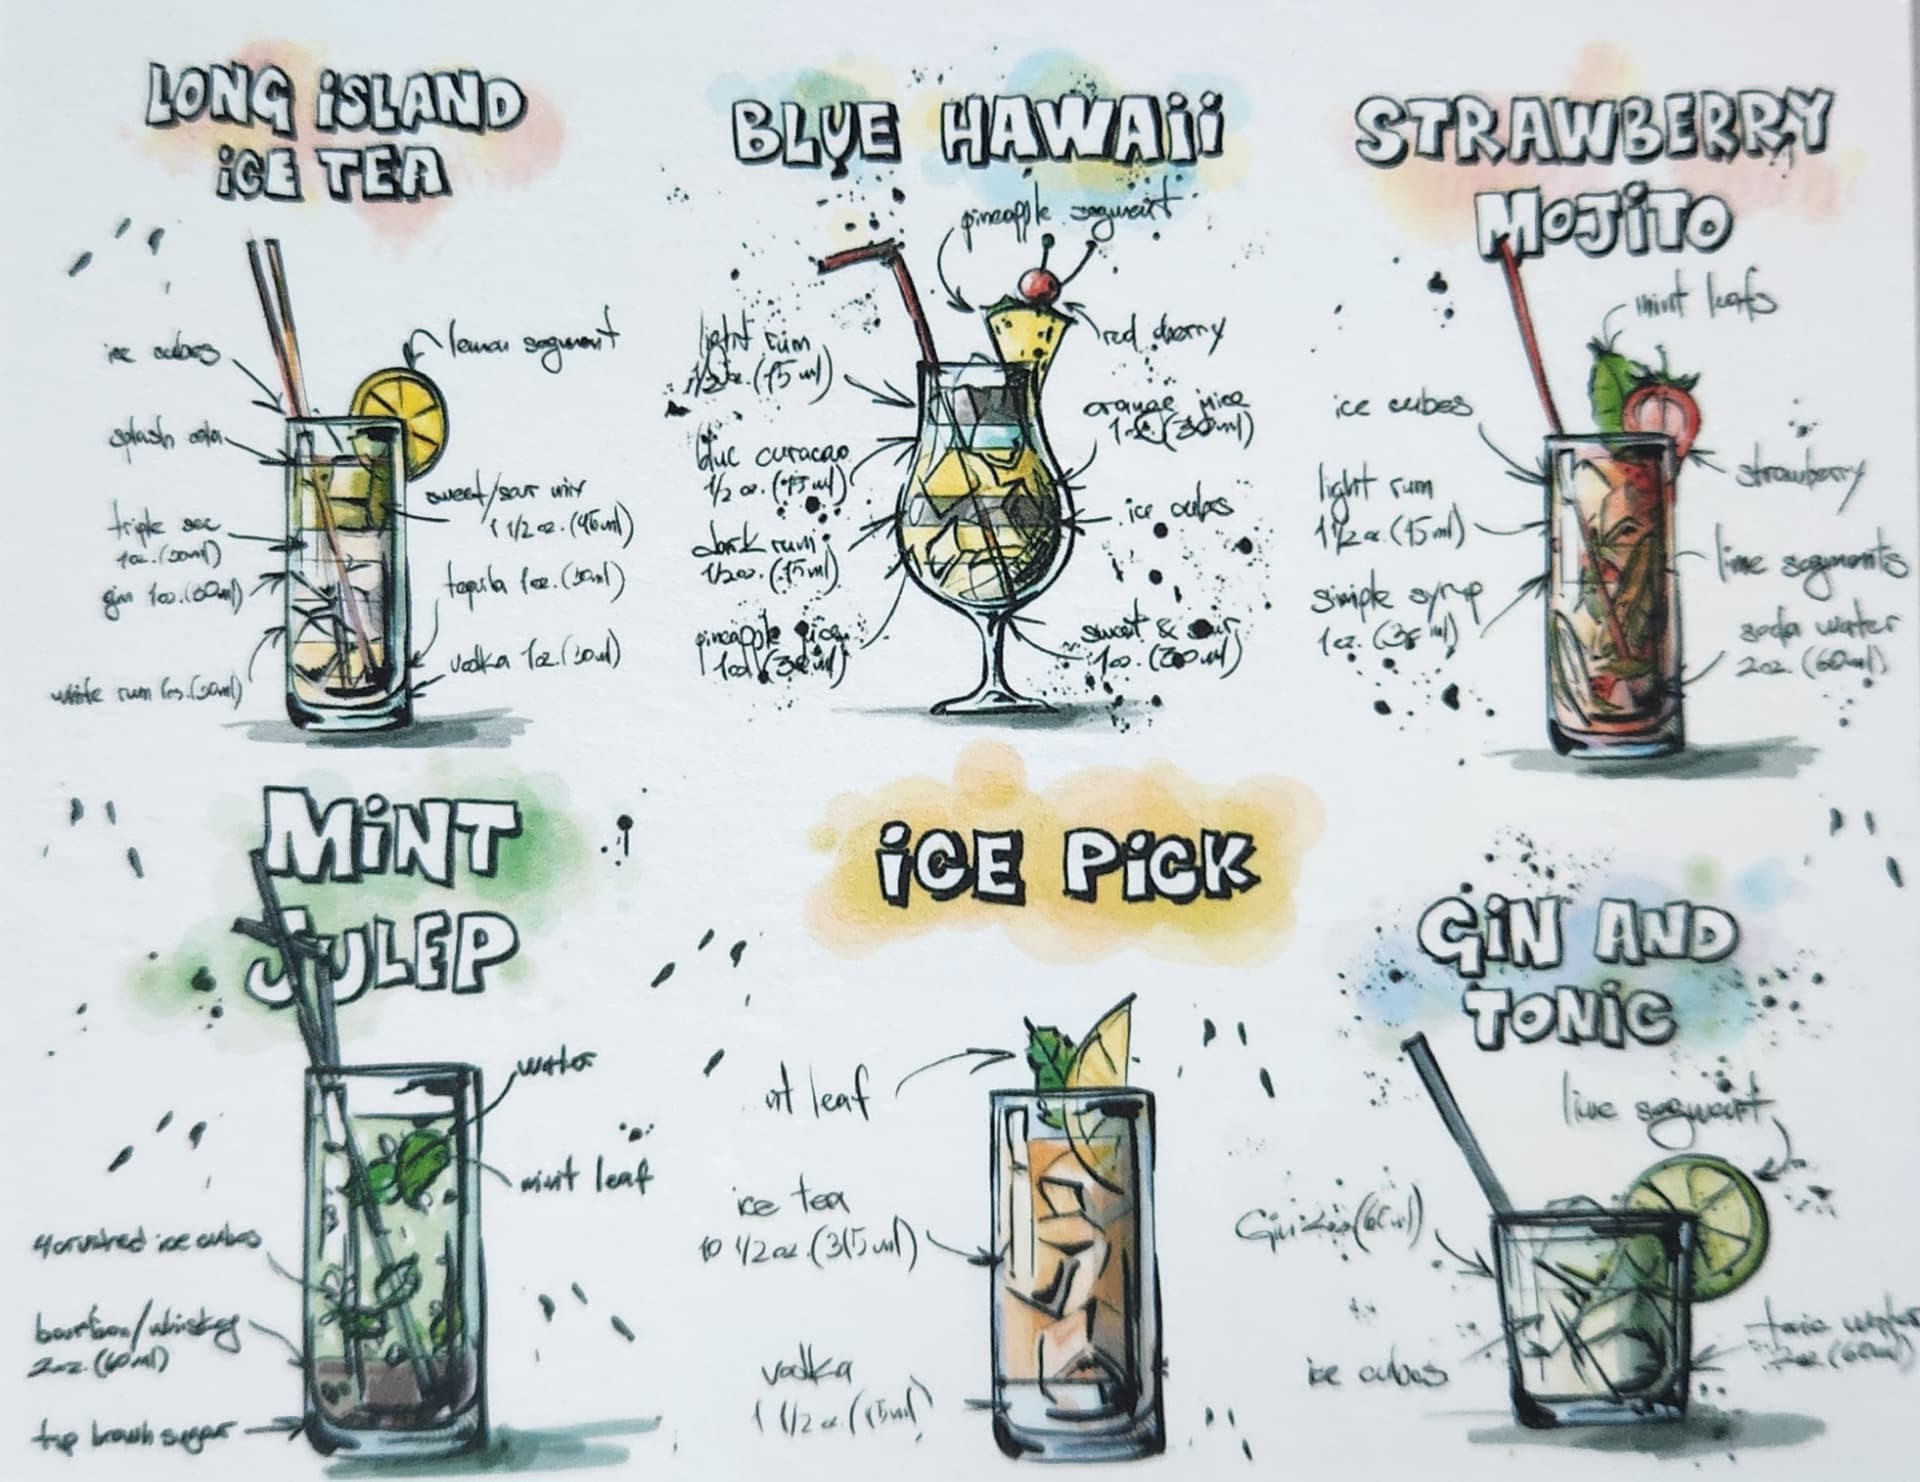 LONG iSLAND
iCE TEA
ice cubes
lemon segment
splash cola
sweet/sour mix
1 1/2 oz. (45ml)
triple sec
1oz. (30ml)
gin 1oz. (30ml)
tequila 1oz. (30ml)
vodka 1oz. (30ml)
white rum 1oz. (30ml)
BLUE HAWAii
pineapple segment
light rum
1/2 oz. (15 ml)
red cherry
orange juice
1oz. (30ml)
blue curacao
1/2 oz. (15 ml)
ice cubes
dark rum
1/2oz. (15ml)
pineapple juice
1oz. (30ml)
sweet & sour
1oz. (30ml)
STRAWBERRY
MOJiTO
mint leafs
ice cubes
strawberry
light rum
1 1/2 oz. (15 ml)
lime segments
simple syrup
1oz. (30 ml)
soda water
2oz. (60ml)
MiNT
JULEP
water
mint leaf
4 crushed ice cubes
bourbon/whiskey
2oz. (60ml)
tsp brown sugar
iCE PiCK
leaf
ice tea
10 1/2 oz. (315 ml)
vodka
1 1/2 oz. (15ml)
GiN AND
TONiC
lime segment
Gin 2oz (60ml)
ice cubes
tonic water
2oz (60ml)